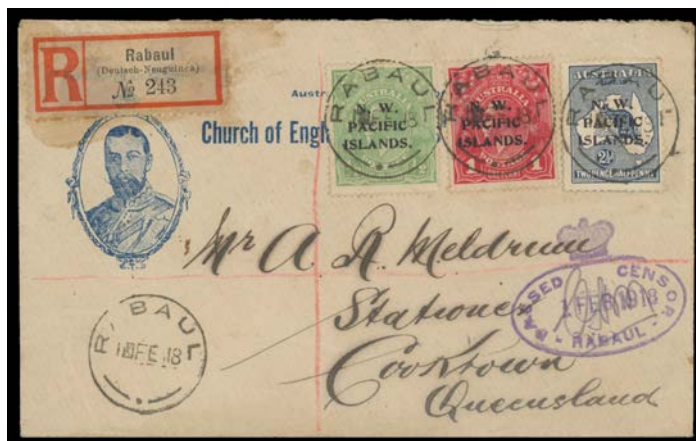 R
Rabaul
(Deutsch-Neuguinea)
№ 243
Austr
Church of Engl
AUSTRALIA
N. W.
PACIFIC
ISLANDS.
RABAUL
AUSTRALIA
N. W.
PACIFIC
ISLANDS.
1
RABAUL
AUSTRALIA
N. W.
PACIFIC
ISLANDS.
2½
TWO PENCE HALFPENNY
RABAUL
Mr A. R. Meldrum
Stationer
Cooktown
Queensland
PASSED CENSOR
1 FEB 1918
- RABAUL -
RABAUL
FE 18